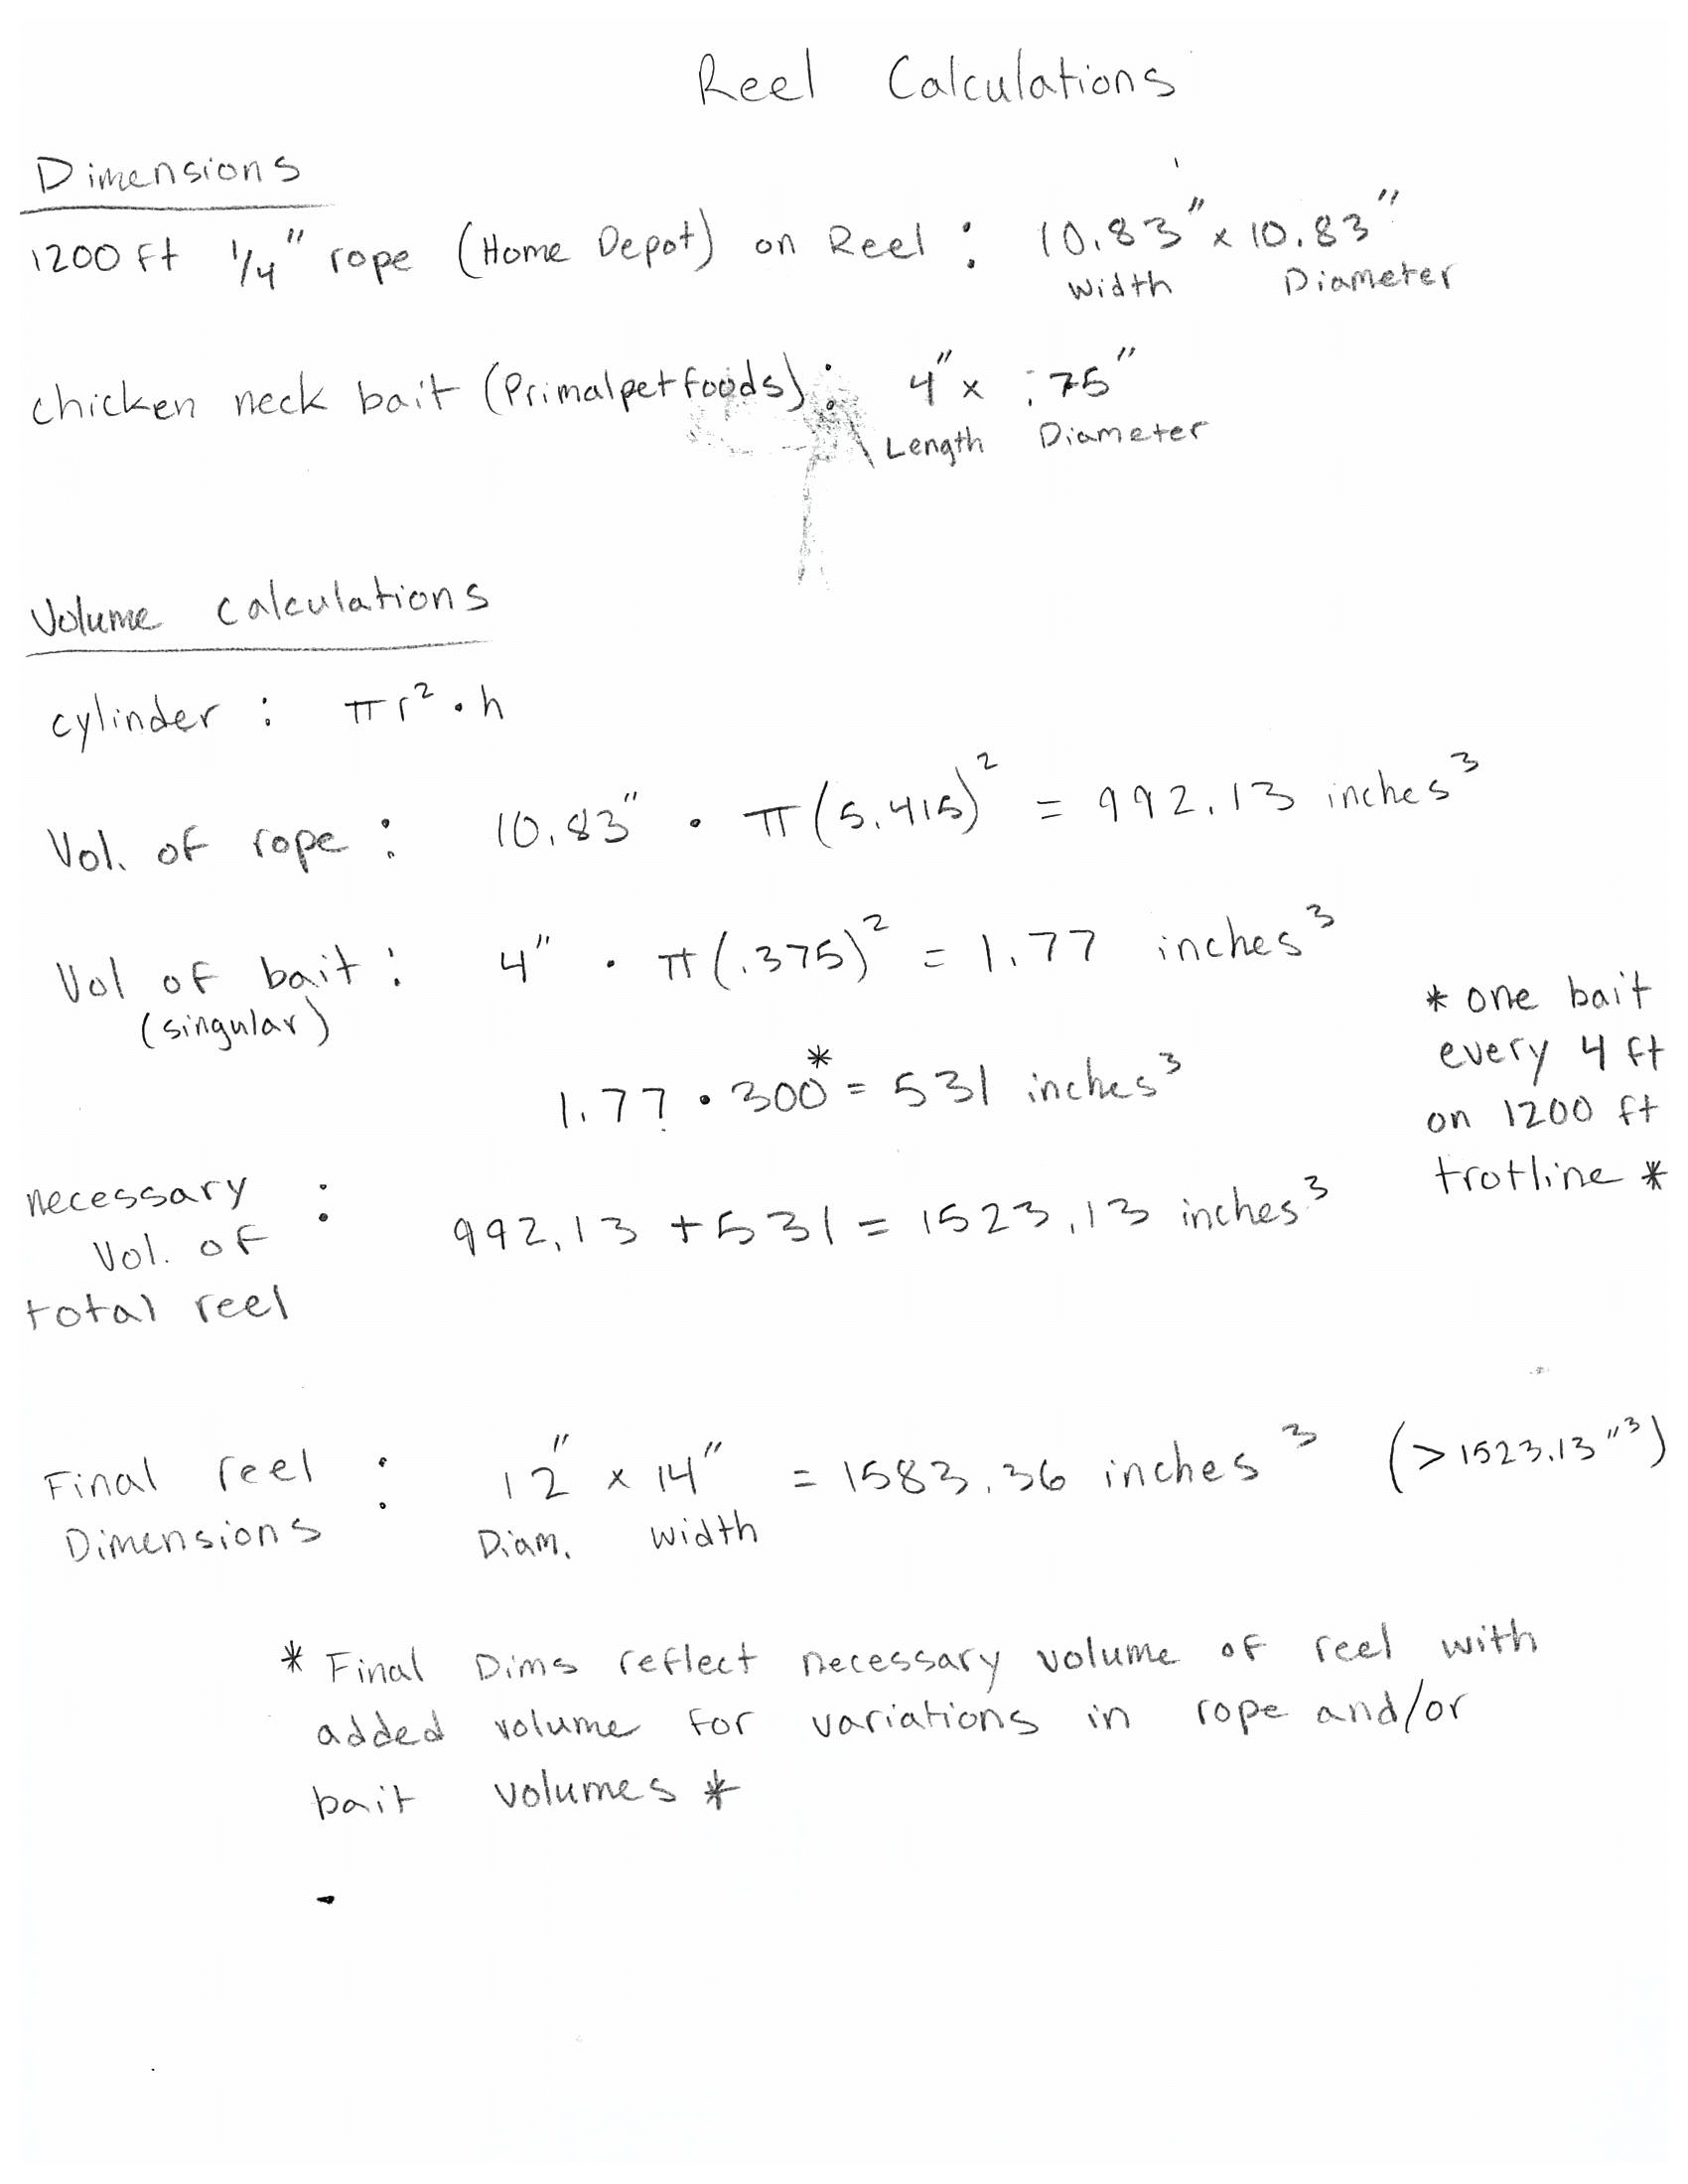 Reel Calculations
Dimensions
1200 ft 1/4" rope (Home Depot) on Reel : 10.83" x 10.83"
Width Diameter
chicken neck bait (Primalpetfoods) : 4" x .75"
Length Diameter
Volume calculations
cylinder : πr² · h
Vol. of rope : 10.83" · π(5.415)² = 992.13 inches³
Vol of bait : 4" · π(.375)² = 1.77 inches³
(singular)
1.77 · 300* = 531 inches³
* one bait
every 4 ft
on 1200 ft
trotline *
necessary :
Vol. of
total reel
992.13 + 531 = 1523.13 inches³
Final reel : 12" x 14" = 1583.36 inches³ (> 1523.13"³)
Dimensions Diam. width
* Final Dims reflect necessary volume of reel with
added volume for variations in rope and/or
bait volumes *